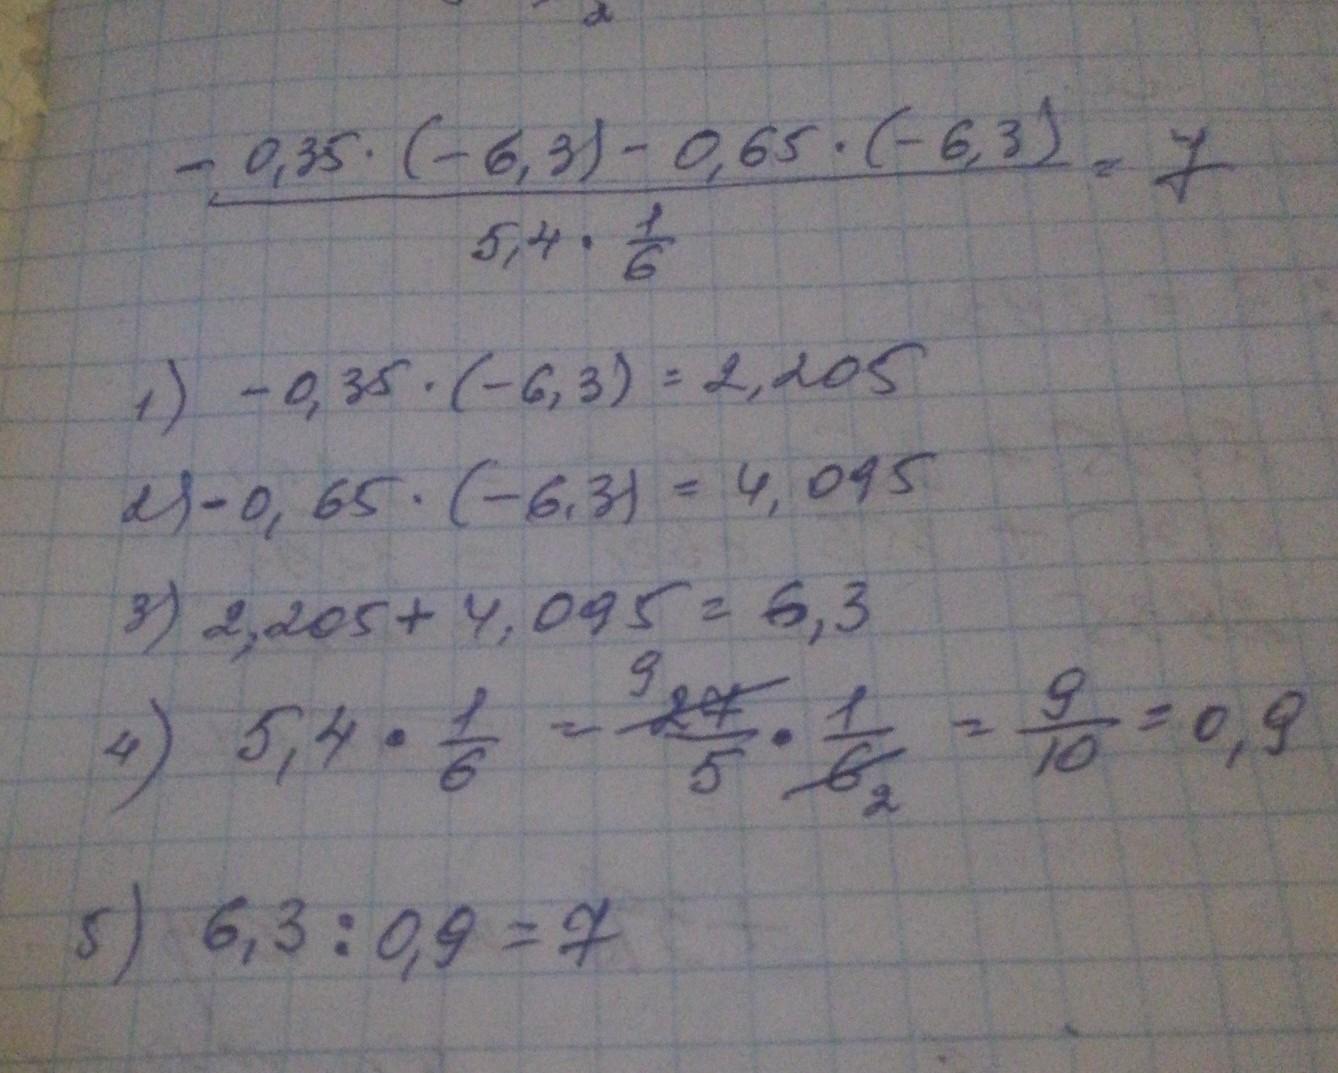 2
- 0,35 · (- 6,3) - 0,65 · (- 6,3) = 7
5,4 · 1/6
1) - 0,35 · (- 6,3) = 2,205
2) - 0,65 · (- 6,3) = 4,095
3) 2,205 + 4,095 = 6,3
4) 5,4 · 1/6 = 9 27/5 · 1/6 2 = 9/10 = 0,9
5) 6,3 : 0,9 = 7